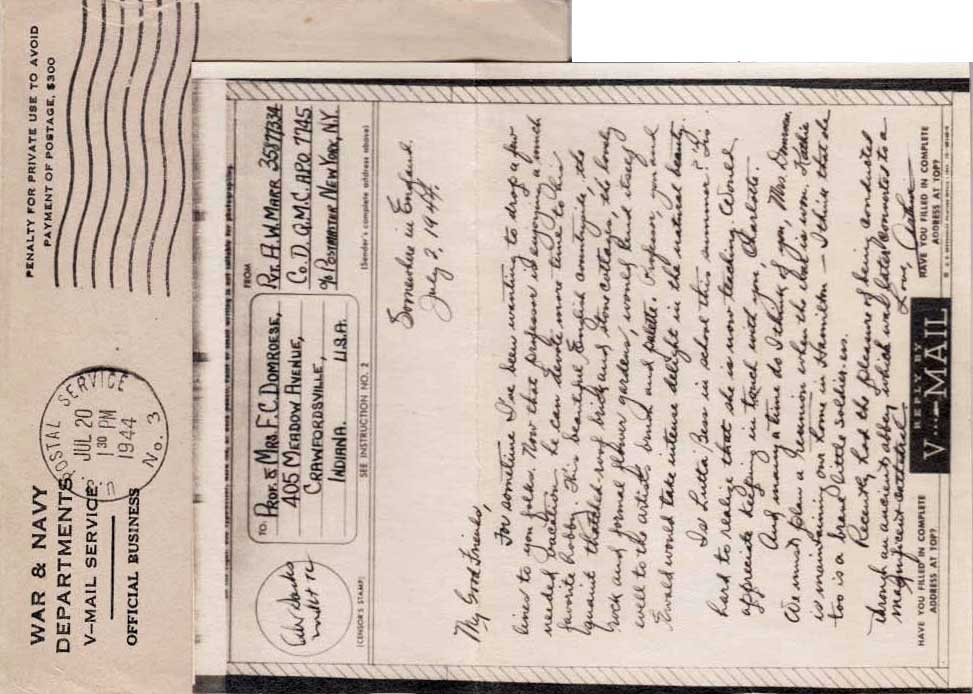 WAR & NAVY
DEPARTMENTS
V-MAIL SERVICE
OFFICIAL BUSINESS
POSTAL SERVICE
JUL 20
1 30 PM
1944
No. 3
PENALTY FOR PRIVATE USE TO AVOID
PAYMENT OF POSTAGE, $300
(CENSOR'S STAMP)
TO:
PROF. & MRS. F.C. DOMROESE,
405 MEADOW AVENUE,
CRAWFORDSVILLE,
INDIANA. U.S.A.
SEE INSTRUCTION NO. 2
FROM
PVT. A.W. MARR 35877334
CO. D. Q.M.C. APO 7745
% POSTMASTER NEW YORK, N.Y.
(Sender's complete address above)
Somewhere in England
July 3, 1944.
My Good Friends,
For sometime I've been wanting to drop a few
lines to you folks. Now that professor is enjoying a much
needed vacation he can devote more time to his
favorite hobby. This beautiful English countryside, the
quaint thatched-roof brick and stone cottages, the lovely
rock and formal flower gardens, would lend itself
well to the artist's brush and palette. Professor, you and
Ewald would take intense delight in the natural beauty.
Is Lutta Bess in school this summer? It's
hard to realize that she is now teaching. Would
appreciate keeping in touch with you, Charlotte.
And many a time do I think of you, Mrs. Domroese.
We must plan a reunion when the war is won. Kathie
is maintaining our home in Hamilton - I think that she
too is a brave little soldier.
Recently had the pleasure of being conducted
through an ancient abbey which was later converted to a
magnificent cathedral.
Love, Arthur
HAVE YOU FILLED IN COMPLETE
ADDRESS AT TOP?
REPLY BY
V···—MAIL
HAVE YOU FILLED IN COMPLETE
ADDRESS AT TOP?